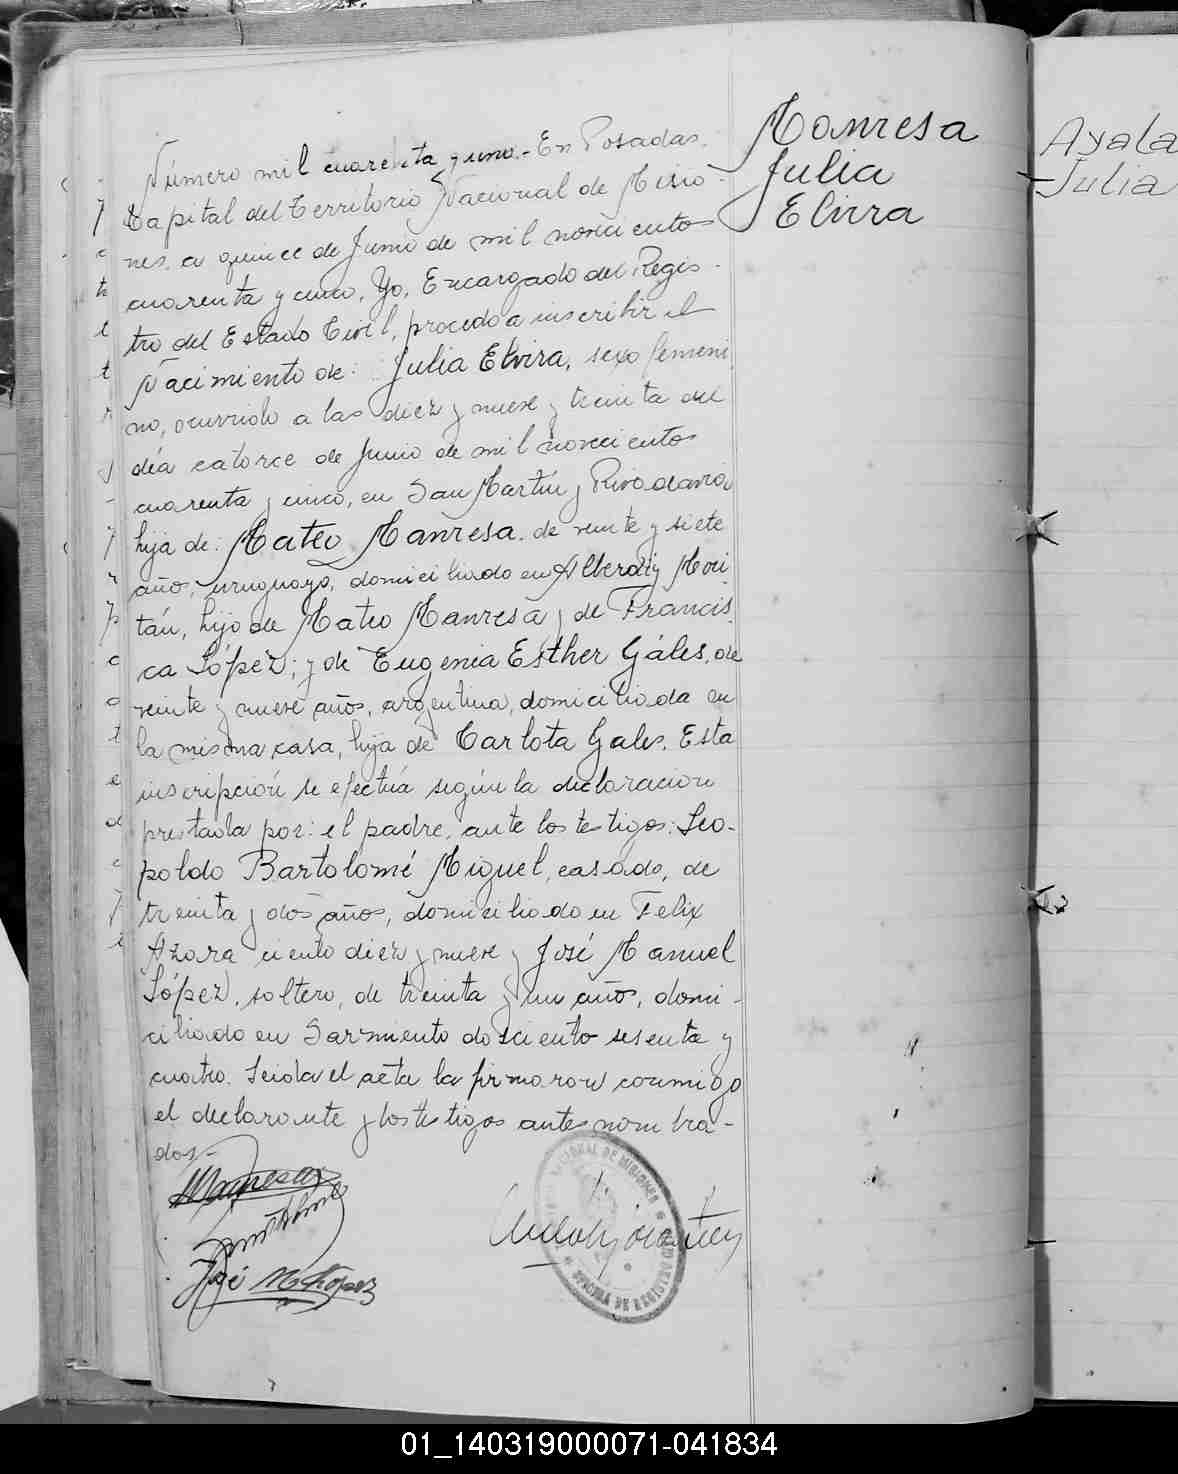 Manresa
Julia
Elvira
Ayala
Julia
Número mil cuarenta y uno.- En Posadas,
Capital del Territorio Nacional de Misio-
nes, a quince de Junio de mil novecientos
cuarenta y cinco, Yo, Encargado del Regis-
tro del Estado Civil, procedo a inscribir el
Nacimiento de: Julia Elvira, sexo femeni-
no, ocurrido a las diez y nueve y treinta del
día catorce de Junio de mil novecientos
cuarenta y cinco, en San Martín y Rivadavia
hija de: Mateo Manresa, de veinte y siete
años, uruguayo, domiciliado en Alberdi y
tán, hijo de Mateo Manresa y de Francis-
ca López; y de Eugenia Esther Gáles, de
veinte y nueve años, argentina, domiciliada en
la misma casa, hija de Carlota Gales. Esta
inscripción se efectúa según la declaración
prestada por: el padre, ante los testigos: Leo-
poldo Bartolomé Miguel, casado, de
treinta y dos años, domiciliado en Felix
Azara ciento diez y nueve y José Manuel
López, soltero, de treinta y un años, domi-
ciliado en Sarmiento dosciento sesenta y
cuatro. Leida el acta la firmaron conmigo
el declarante y los testigos antes nombra-
dos.-
MManresa
José M. López
NACIONAL DE MISIONES
OFICINA DE REGISTRO CIVIL
01_140319000071-041834